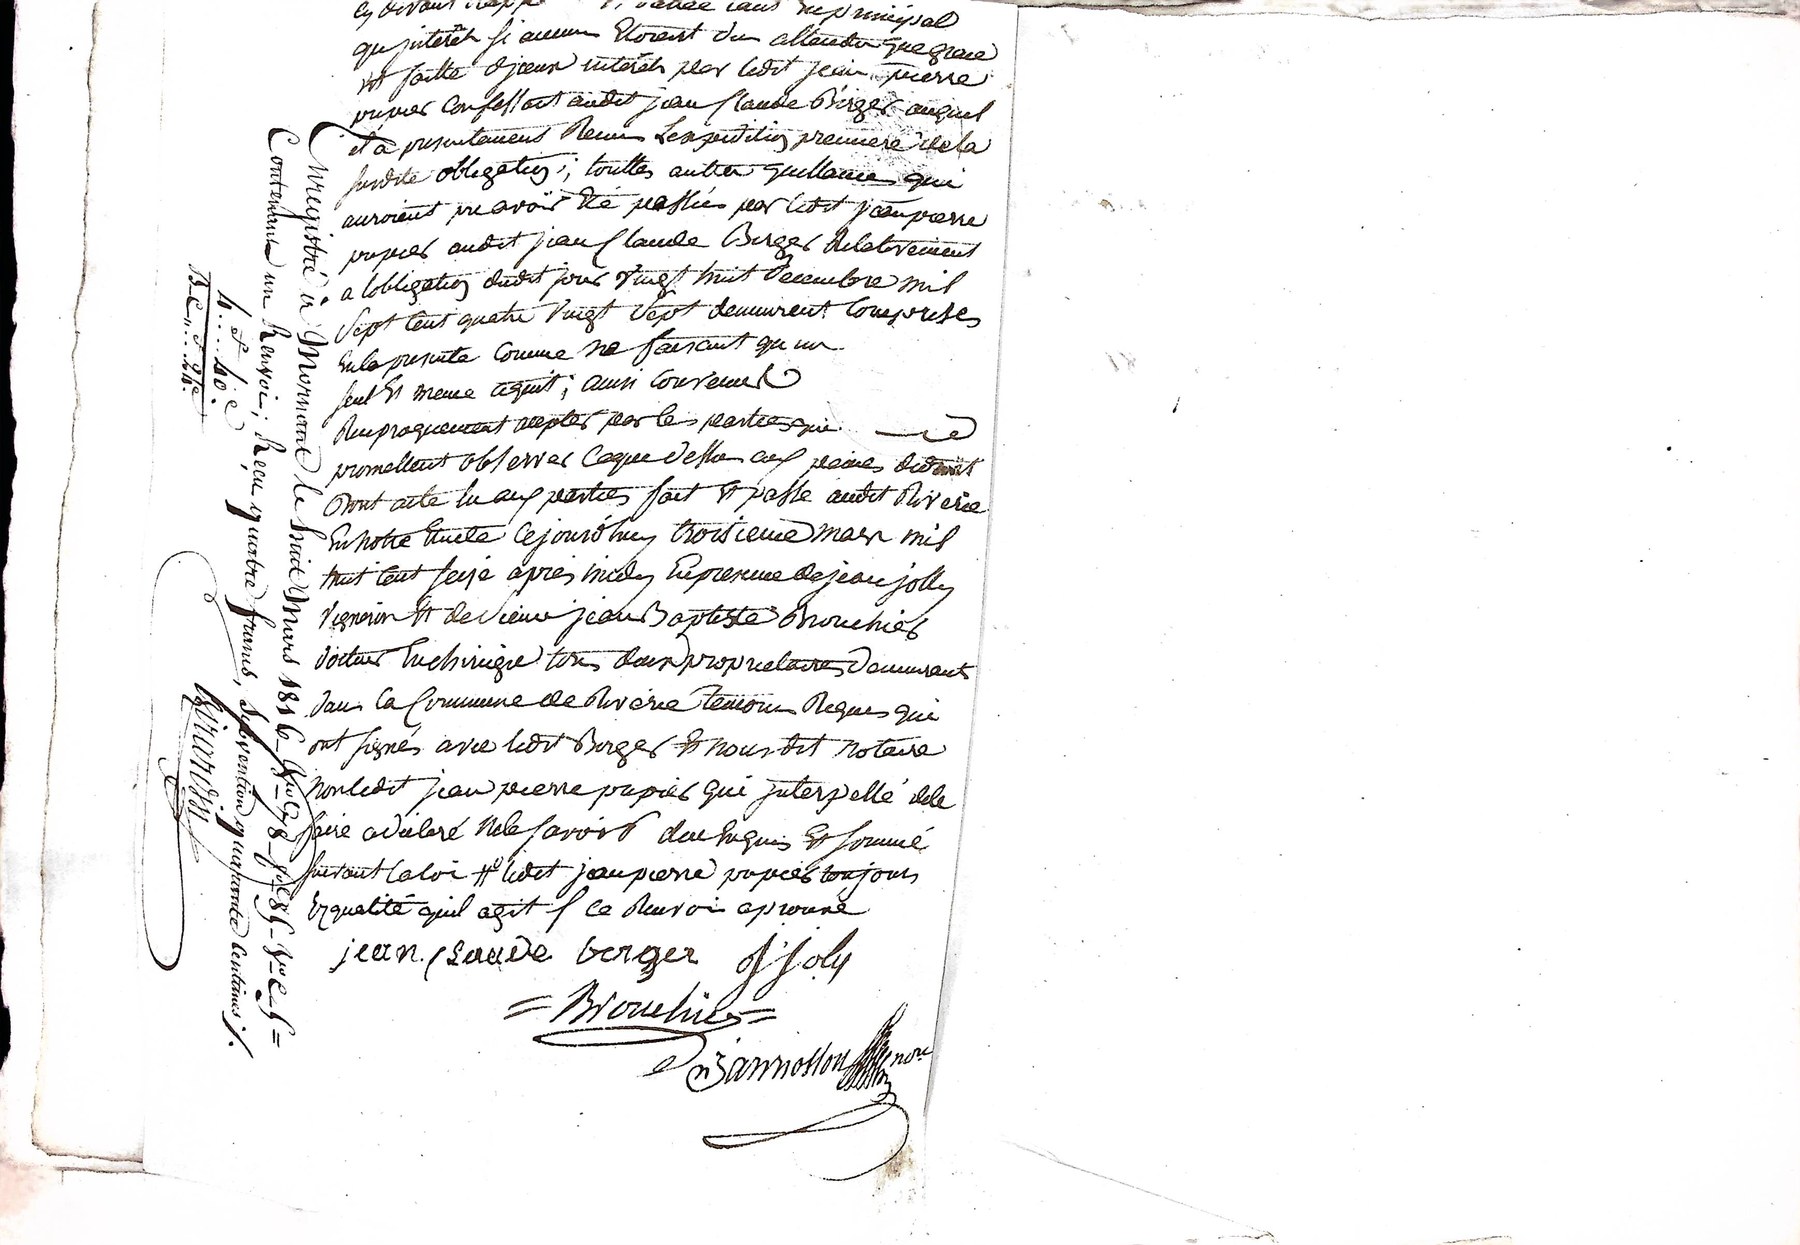 qu'intérêt si aucun Etoient dus attendu que grace
Et faitte d'jceux intérêts par ledit jean pierre
papier Confessant audit jean Claude Berger auquel
il a presentement Remis L'expedition premiere de la
susdite obligation; touttes autres quittances qui
auroient pu avoir Eté passées par ledit jean pierre
papier audit jean Claude Berger Relativement
a l'obligation dudit jour Vingt huit Decembre mil
Sept Cent quatre Vingt Sept demeurent Comprises
En la presente Comme ne faisant qu'un
seul Et meme aquit; ainsi Convenu Et
Reciproquement accepter par les parties qui
promettent observer Ceque dessus aux peines de droit
Dont acte lu aux parties fait Et passé audit Riverie
En notre Etude Cejourd'huy troisieme mars mil
huit Cent seize après midy En presence de jean jolly
Vigneron Et de Sieur jean Baptiste Brouchier
docteur En chirurgie tous deux proprietaires Demeurants
dans la Commune de Riverie temoins Requis qui
ont signés avec ledit Berger Et nous dit notaire
non ledit jean pierre papier qui jnterpellé de le
faire a declaré ne le savoir de ce Enquis Et sommé
suivant la loi # ledit jean pierre papier toujours
En qualité qu'il agit / Ce Renvoi aprouvé
jean Claude berger J joly
= Brouchier =
Jannosson nore
Enregistré à Mornant le huit Mars 1816
Contenant un Renvoi; Reçu quatre francs, subvention quarante Centimes ./.
4 . . . . 40.
Girardon